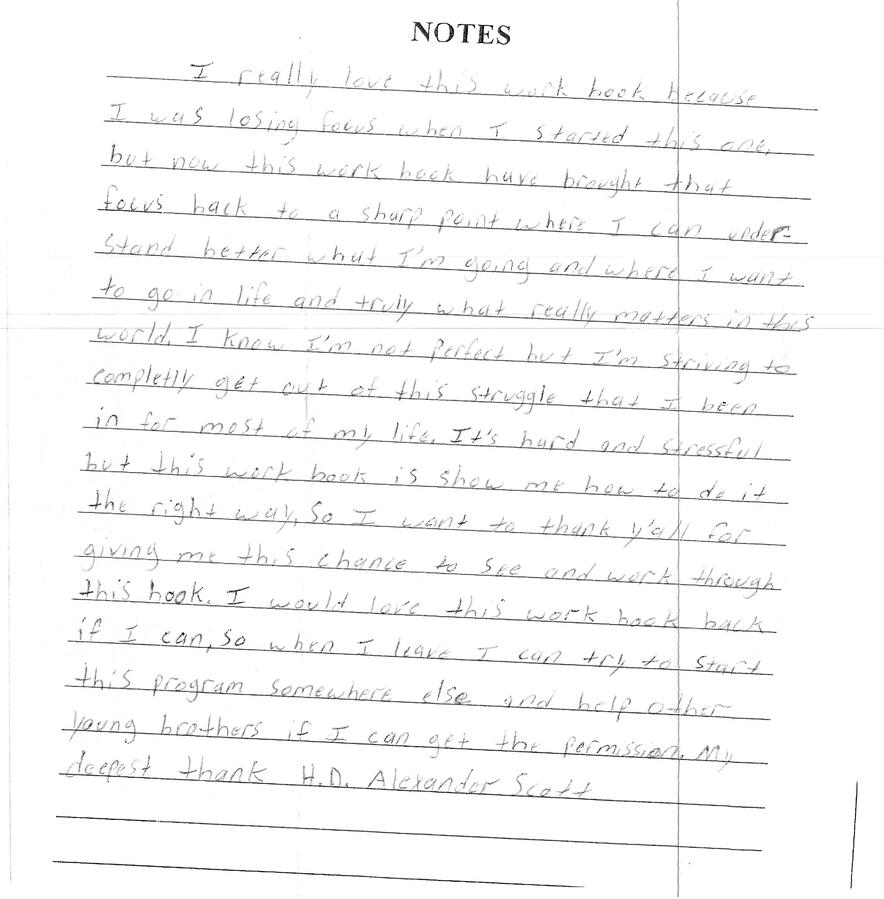 NOTES
I really love this work book because
I was losing focus when I started this one,
but now this work book have brought that
focus back to a sharp point where I can under-
stand better what I'm going and where I want
to go in life and truly what really matters in this
world. I know I'm not perfect but I'm striving to
completly get out of this struggle that I been
in for most of my life. It's hard and stressful
but this work book is show me how to do it
the right way, So I want to thank y'all for
giving me this chance to see and work through
this book. I would love this work book back
if I can, so when I leave I can try to start
this program somewhere else and help other
young brothers if I can get the permission. My
deepest thank H.D. Alexander Scott